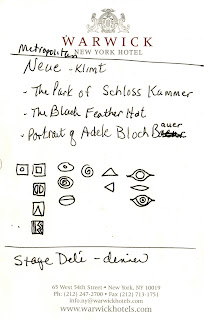 WARWICK
NEW YORK HOTEL
Metropolitan
Neue - Klimt
- The Park of Schloss Kammer
- The Black Feather Hat
- Portrait of Adele Bloch Bauer
Stage Deli - dinner
65 West 54th Street • New York, NY 10019
Ph: (212) 247-2700 • Fax (212) 713-1751
info.ny@warwickhotels.com
www.warwickhotels.com